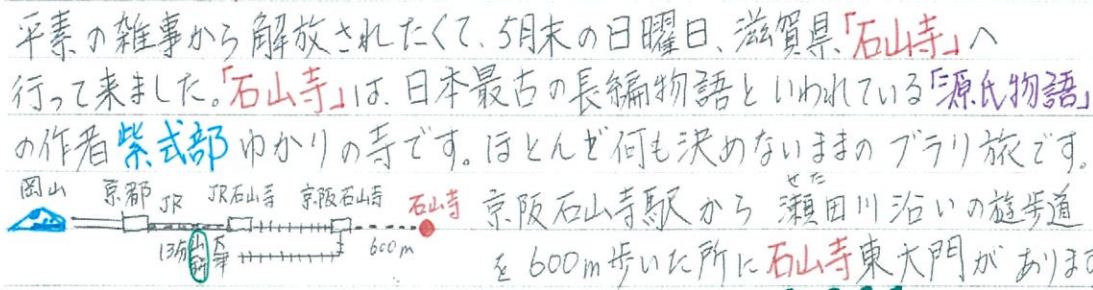 平素の雑事から解放されたくて、5月末の日曜日、滋賀県「石山寺」へ
行って来ました。「石山寺」は、日本最古の長編物語といわれている「源氏物語」
の作者紫式部ゆかりの寺です。ほとんど何も決めないままのブラリ旅です。
岡山 京都 JR JR石山寺 京阪石山寺 石山寺
13分 600m
せた
京阪石山寺駅から瀬田川沿いの遊歩道
を600m歩いた所に石山寺東大門がありま